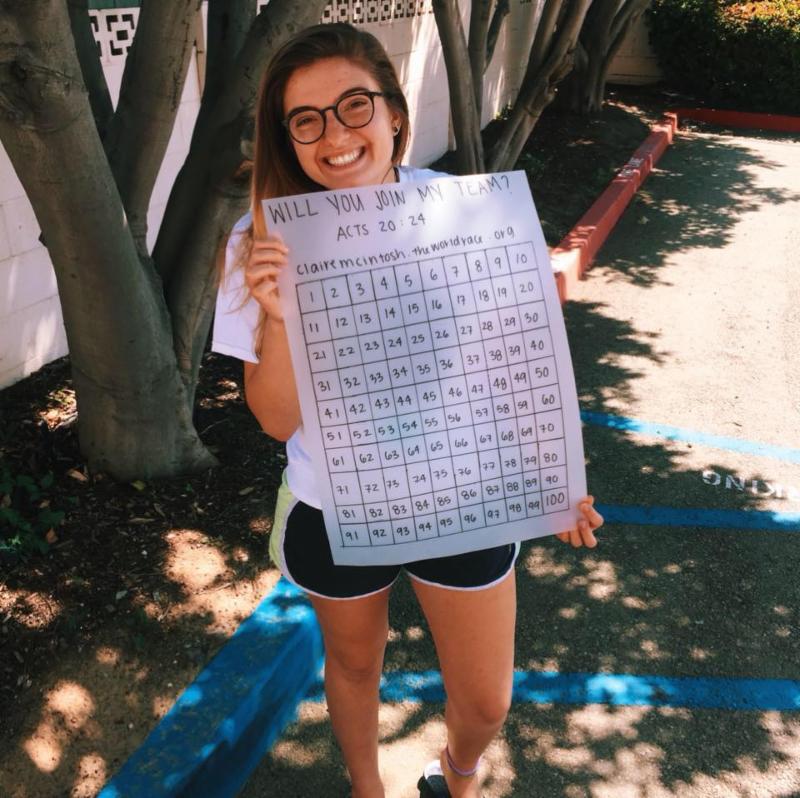 WILL YOU JOIN MY TEAM?
ACTS 20:24
clairemcintosh.theworldrace.org
1 2 3 4 5 6 7 8 9 10
11 12 13 14 15 16 17 18 19 20
21 22 23 24 25 26 27 28 29 30
31 32 33 34 35 36 37 38 39 40
41 42 43 44 45 46 47 48 49 50
51 52 53 54 55 56 57 58 59 60
61 62 63 64 65 66 67 68 69 70
71 72 73 24 75 76 77 78 79 80
81 82 83 84 85 86 87 88 89 90
91 92 93 94 95 96 97 98 99 100